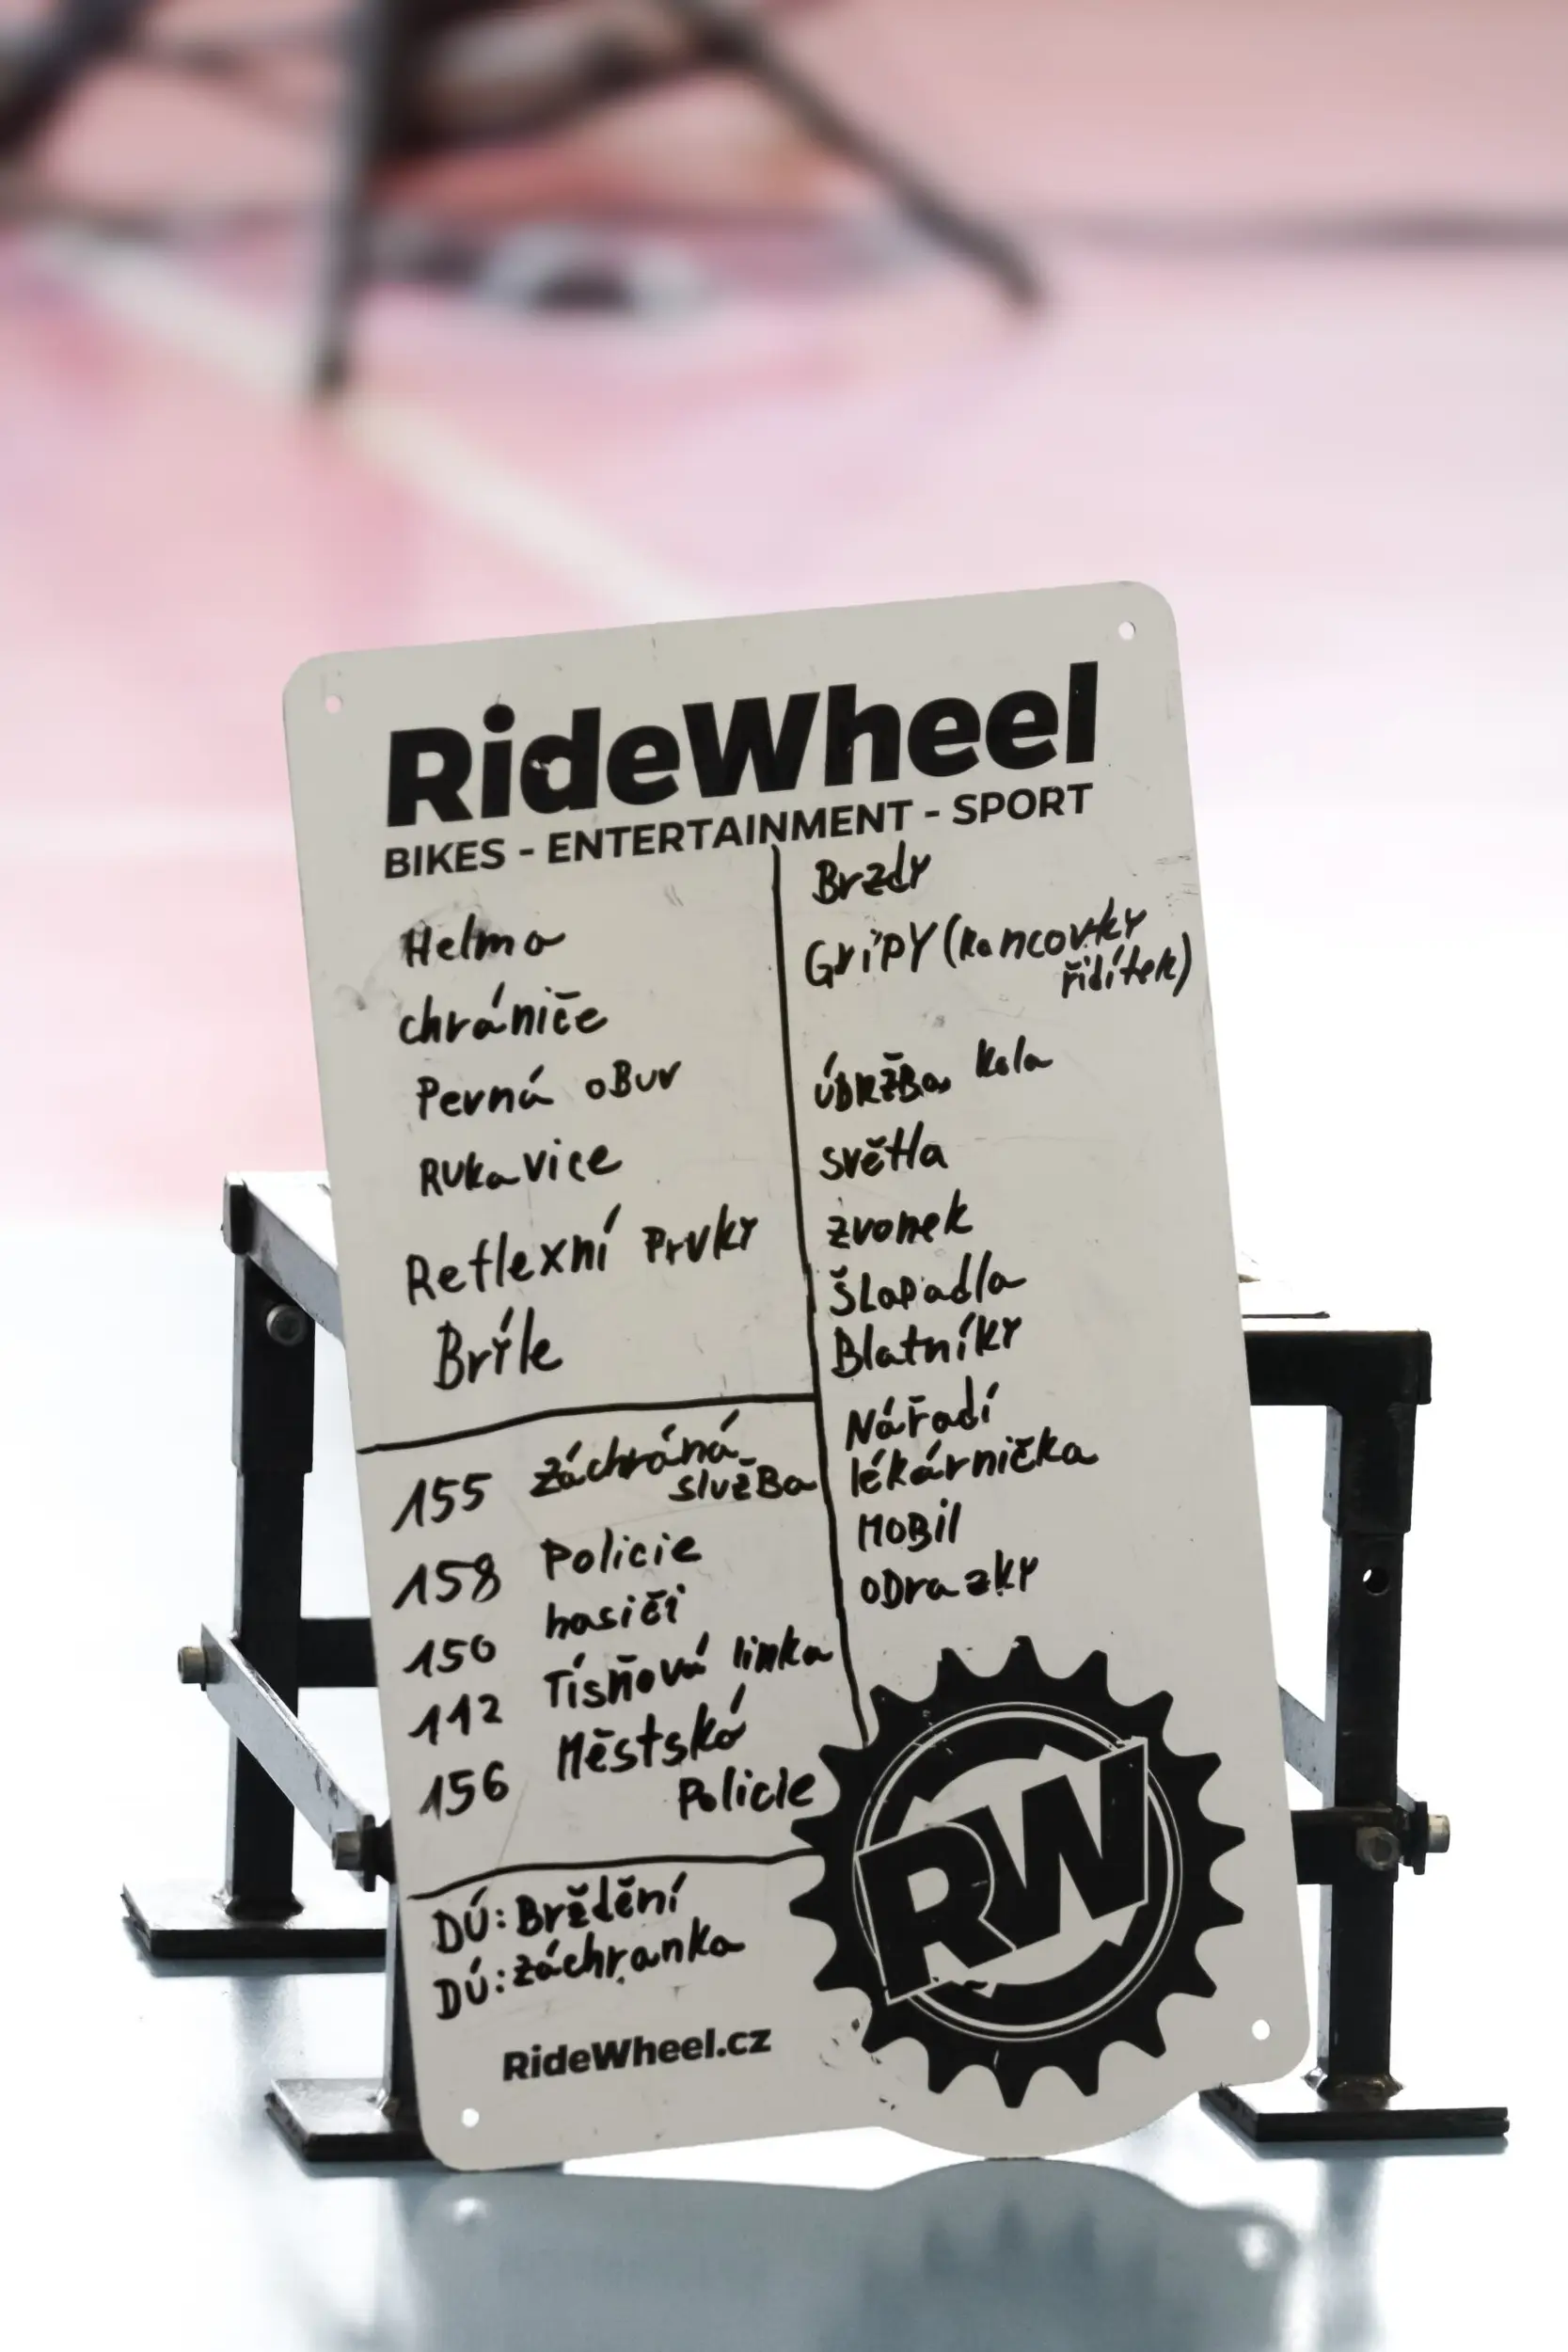 RideWheel
BIKES - ENTERTAINMENT - SPORT
Helma
chrániče
Pevná oBuv
Rukavice
Reflexní Prvky
Brýle
155 Záchráná
služBa
158 Policie
150 hasiči
112 Tísňová linka
156 Městská
Policie
DÚ: Brždění
DÚ: záchranka
RideWheel.cz
Brzdy
GriPY (koncovky
řidítek)
ÚDRŽBa kola
světla
zvonek
Šlapadla
Blatníky
Nářadí
lékárnička
MOBil
oDrazky
RW